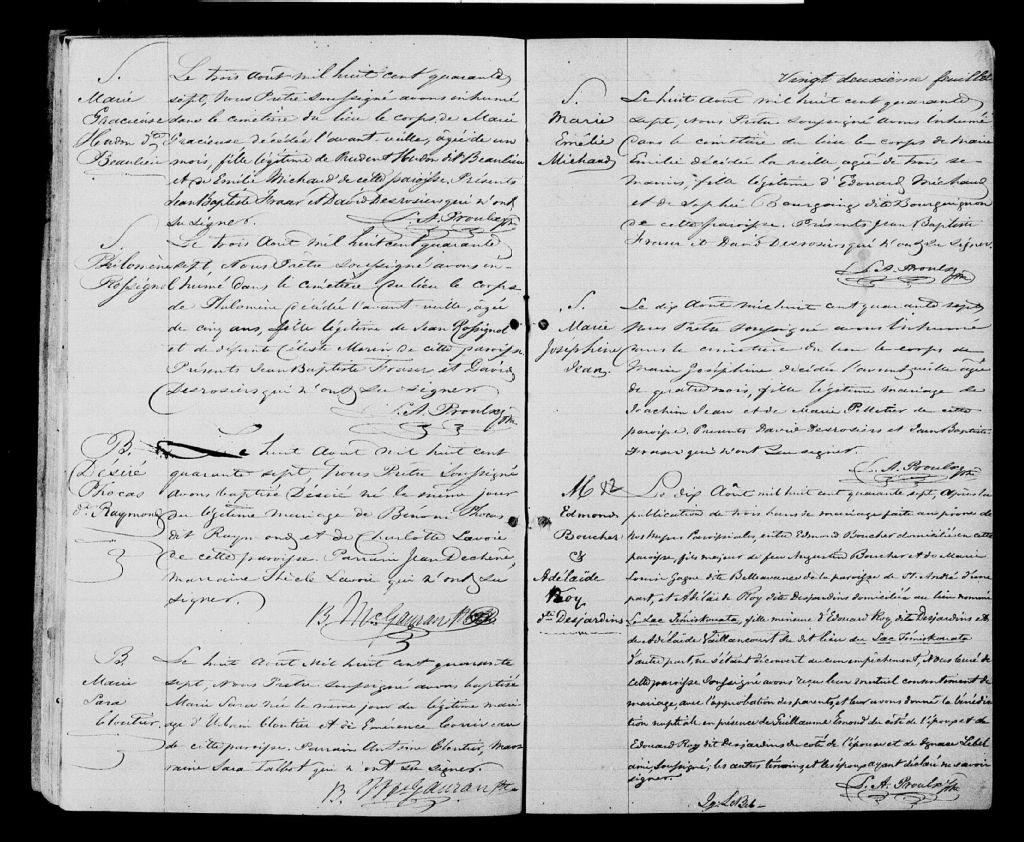 S.
Marie
Gracieuse
Hudon dit
Beaulieu
Le trois Aout mil huit cent quarante
sept, Nous Prêtre soussigné avons inhumé
dans le cimetière du lieu le corps de Marie
Gracieuse décédée l'avant veille, agée de un
mois, fille légitime de Prudent Hudon dit Beaulieu
et de Emilie Michaud de cette paroisse. Présents
Jean Baptiste Fraser et David Desrosiers qui n'ont
su signer.
L. A. Proulx Ptre
S.
Philomène
Rossignol
Le trois Aout mil huit cent quarante
sept, Nous Prêtre soussigné avons in-
humé dans le cimetière du lieu le corps
de Philomène décédée l'avant veille, agée
de cinq ans, fille légitime de Jean Rossignol
et de défunte Céleste Morin de cette paroisse.
Présents Jean Baptiste Fraser et David
Desrosiers qui n'ont su signer
L. A. Proulx Ptre
B.
Désiré
Phocas
dt Raymond
Le huit Aout mil huit cent
quarante sept, Nous Prêtre soussigné
avons baptisé Désiré né le même jour
du légitime mariage de Bénoni Phocas
dit Raymond et de Charlotte Lavoie
de cette paroisse. Parrain Jean Dechêne,
marraine Thècle Lavoie qui n'ont su
signer.
B. McGauran Ptre
B.
Marie
Sara
Cloutier
Le huit Août mil huit cent quarante
sept, Nous Prêtre soussigné avons baptisé
Marie Sara née le même jour du légitime mari-
age d'Urbain Cloutier et de Emérence Corriveau
de cette paroisse. Parrain Cloutier, mar-
raine Sara Talbot qui n'ont su signer.
B. McGauran Ptre
Vingt deuxième feuillet
S.
Marie
Emélie
Michaud
Le huit Août mil huit cent quarante
sept, Nous Prêtre soussigné avons inhumé
dans le cimetière du lieu le corps de Marie
Emilie décédée la veille agée de trois se-
maines, fille légitime d'Edouard Michaud
et de Sophie Bourgoing dite Bourguignon
de cette paroisse. Présents Jean Baptiste
Fraser et David Desrosiers qui n'ont su signer.
L. A. Proulx Ptre
S.
Marie
Joséphine
Jean
Le dix Août mil huit cent quarante sept
Nous Prêtre soussigné avons inhumé
dans le cimetière du lieu le corps de
Marie Joséphine décédée l'avant veille agée
de quatre mois, fille légitime mariage de
Joachim Jean et de Marie Pelletier de cette
paroisse. Présents David Desrosiers et Jean Baptiste
Fraser qui n'ont su signer.
L. A. Proulx Ptre
M
Edmond
Boucher
&
Adélaïde
Roy
dte Desjardins
Le dix Août mil huit cent quarante sept, Après la
publication de trois bans de mariage faite au prône de
nos messes Paroissiales, entre Edmond Boucher domicilié en cette
paroisse, fils majeur de feu Augustin Boucher et de Marie
Louise Gagné dite Bellavance de la paroisse de St. André d'une
part, et Adélaïde Roy dite Desjardins domiciliée au lieu nommé
Le Lac Témiskouata, fille mineure d'Edouard Roy dit Desjardins et
de Adélaïde Vaillancourt du dit lieu du Lac Témiskouata
d'autre part, ne s'étant découvert aucun empêchement, Nous Curé de
cette paroisse soussigné avons reçu leur mutuel consentement de
mariage avec l'approbation des parents et leur avons donné la bénédic-
tion nuptiale en présence de Guillaume Emond du coté de l'époux et de
Edouard Roy dit Desjardins du côté de l'épouse et de Ignace Lebel
ami soussigné; les autres témoins et les époux ayant déclaré ne savoir
signer.
L. A. Proulx Ptre
Ig. LeBel